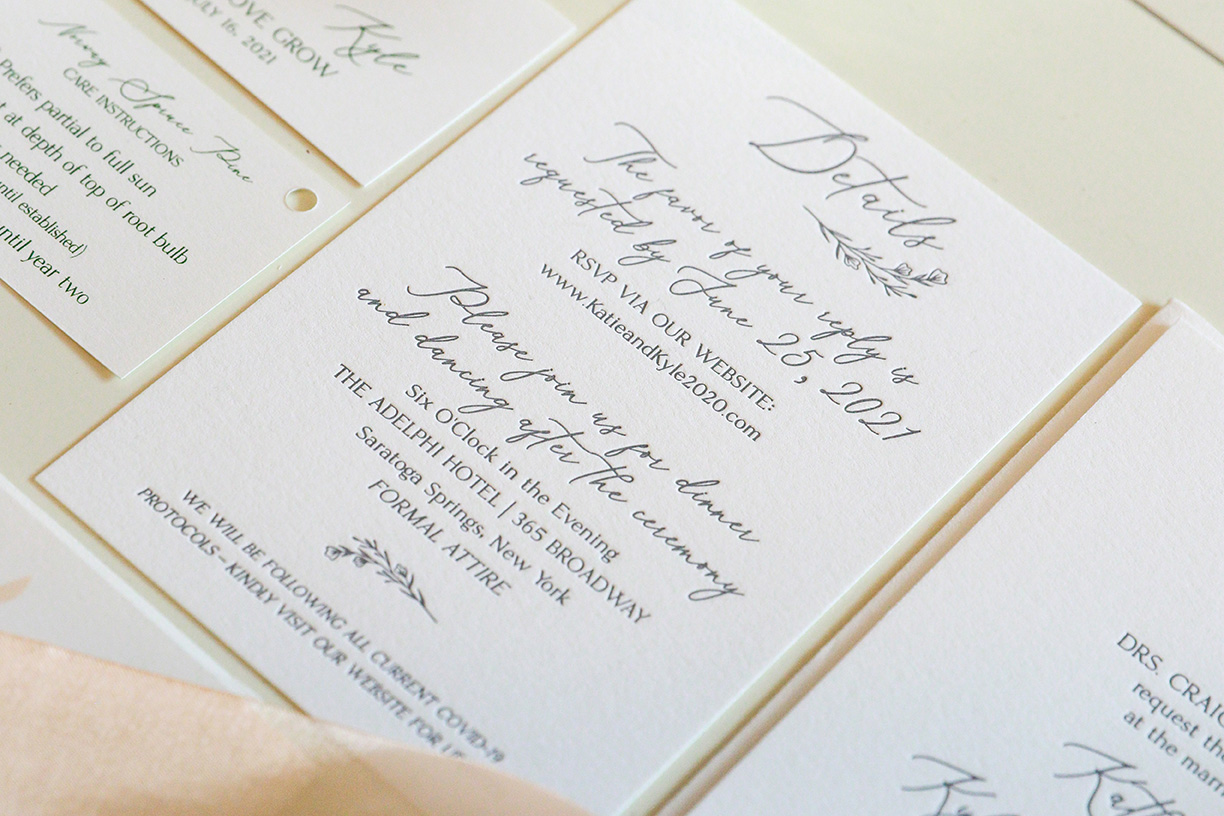 OVE GROW
JULY 16, 2021
Kyle
Norway Spruce Pine
CARE INSTRUCTIONS
Prefers partial to full sun
at depth of top of root bulb
needed
until established)
until year two
Details
The favor of your reply is
requested by June 25, 2021
RSVP VIA OUR WEBSITE:
www.KatieandKyle2020.com
Please join us for dinner
and dancing after the ceremony
Six O'Clock in the Evening
THE ADELPHI HOTEL | 365 BROADWAY
Saratoga Springs, New York
FORMAL ATTIRE
WE WILL BE FOLLOWING ALL CURRENT COVID-19
PROTOCOLS—KINDLY VISIT OUR WEBSITE FOR
DRS. CRAIG
request the
at the mar